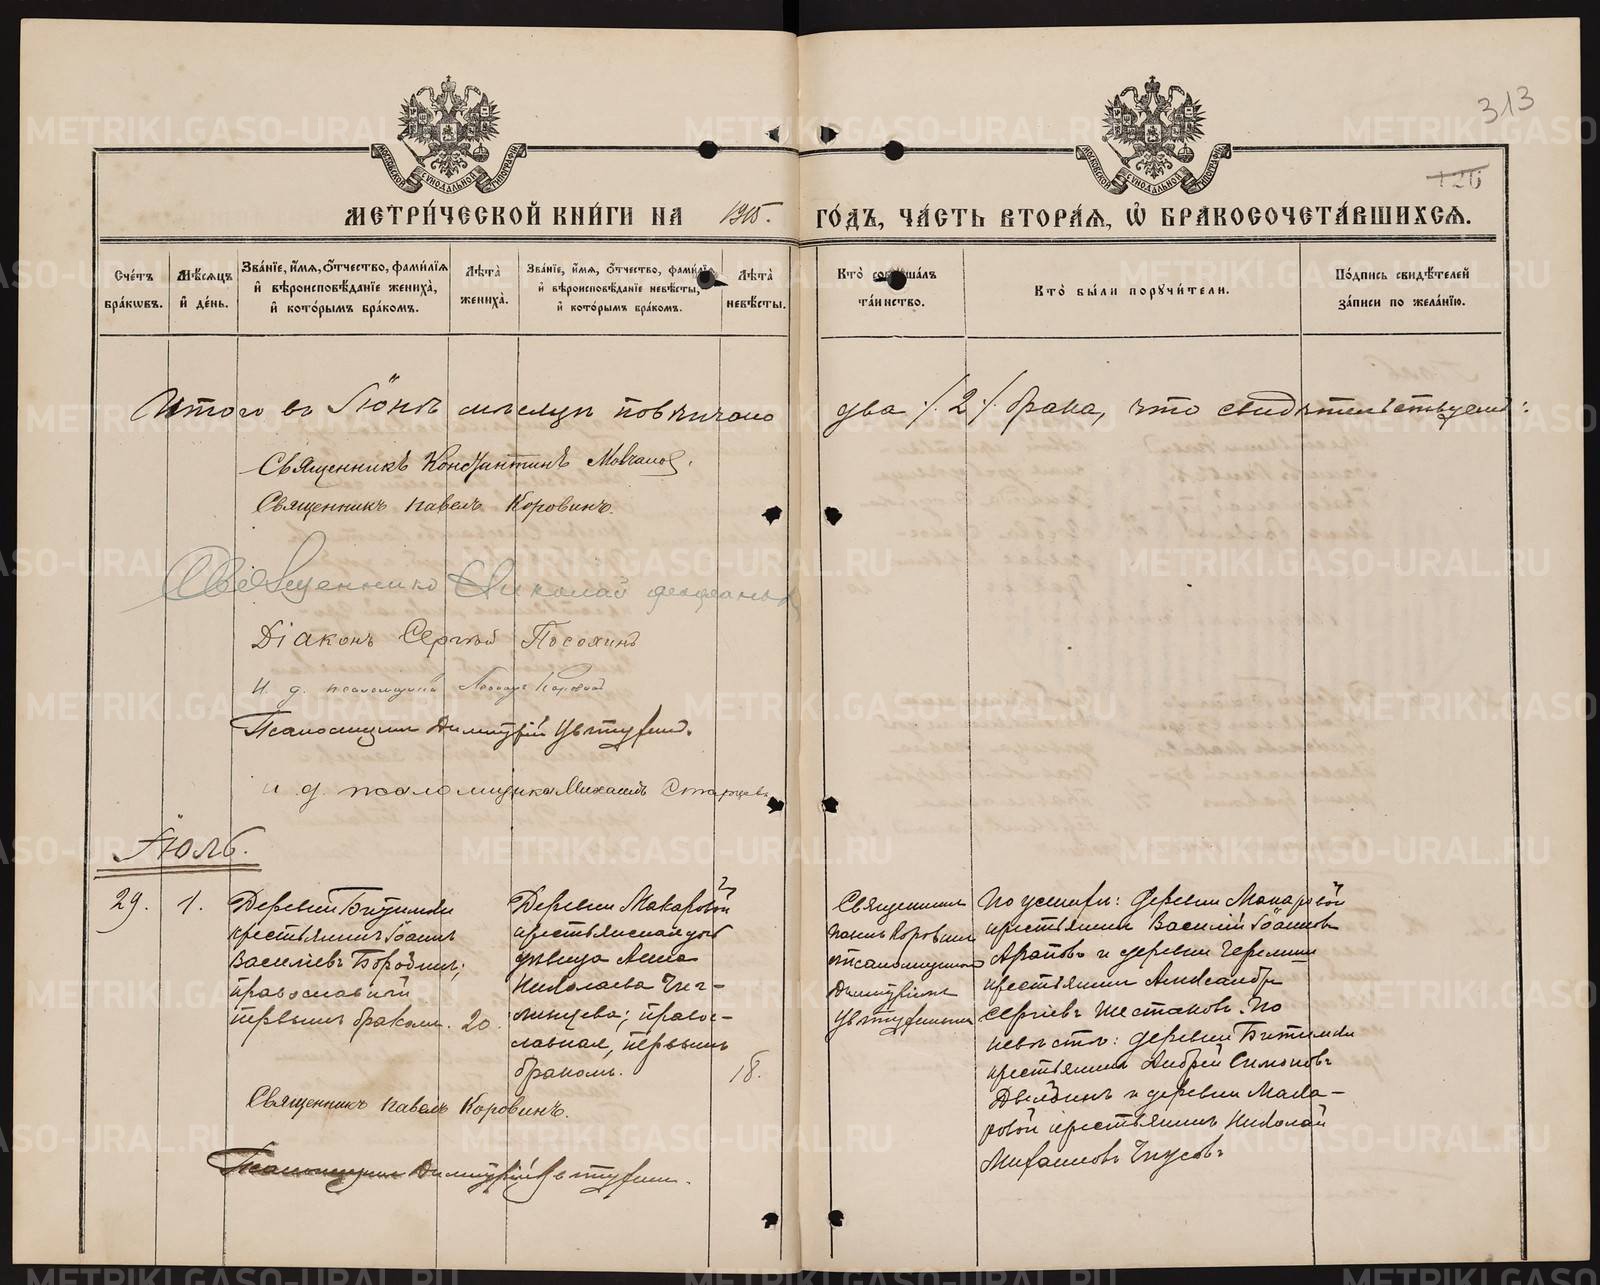 313
126
МОСКОВСКОЙ СѴНОДАЛЬНОЙ ТИПОГРАФІИ
МОСКОВСКОЙ СѴНОДАЛЬНОЙ ТИПОГРАФІИ
МЕТРИ́ЧЕСКОЙ КНИ́ГИ НА 1915. ГО́ДЪ, ЧА́СТЬ ВТОРА́Я, Ѡ҆ БРАКОСОЧЕТА́ВШИХСЯ.
Сче́тъ бра́кѡвъ.
Мѣ́сяцъ и҆ де́нь.
Зва́нїе, и҆́мя, ѻ҆́тчество, фамилїя и҆ вѣроисповѣ́данїе жениха̀, и҆ кото́рымъ бра́комъ.
Лѣ́та жениха̀.
Зва́нїе, и҆́мя, ѻ҆́тчество, фами́лїя и҆ вѣроисповѣ́данїе невѣ́сты, и҆ кото́рымъ бра́комъ.
Лѣ́та невѣ́сты.
Кто̀ соверша́лъ та́инство.
Кто̀ бы́ли поручи́тели.
По́дпись свидѣ́телей за́писи по жела́нїю.
Итого въ Іюнѣ мѣсяцѣ повѣнчано два /2/ брака, что свидѣтельствуемъ:
Священникъ Константинъ
Священникъ Павелъ Коровинъ.
Священникъ Николай
Діаконъ Сергѣй
И. д. псаломщика
Псаломщикъ Димитрій
и. д. псаломщика Михаилъ
Іюль.
29.
1.
Деревни Битимки
крестьянинъ Іоаннъ
Василіевъ Бородинъ;
православный
первымъ бракомъ.
20.
Деревни Макаровой
крестьянская дочь
дѣвица Анна
Николаева
православ-
славная, первымъ
бракомъ.
18.
Священникъ
Павелъ Коровинъ
съ псаломщикомъ
Димитріемъ
По женихѣ: деревни Макаровой
крестьянинъ Василій Іоанновъ
Араповъ и деревни Черемши
крестьянинъ Александръ
Сергіевъ Шестаковъ. По
невѣстѣ: деревни Битимки
крестьянинъ Андрей Симоновъ
и деревни Мака-
ровой крестьянинъ Николай
Михаиловъ
Священникъ Павелъ Коровинъ.
Псаломщикъ Димитрій
METRIKI.GASO-URAL.RU